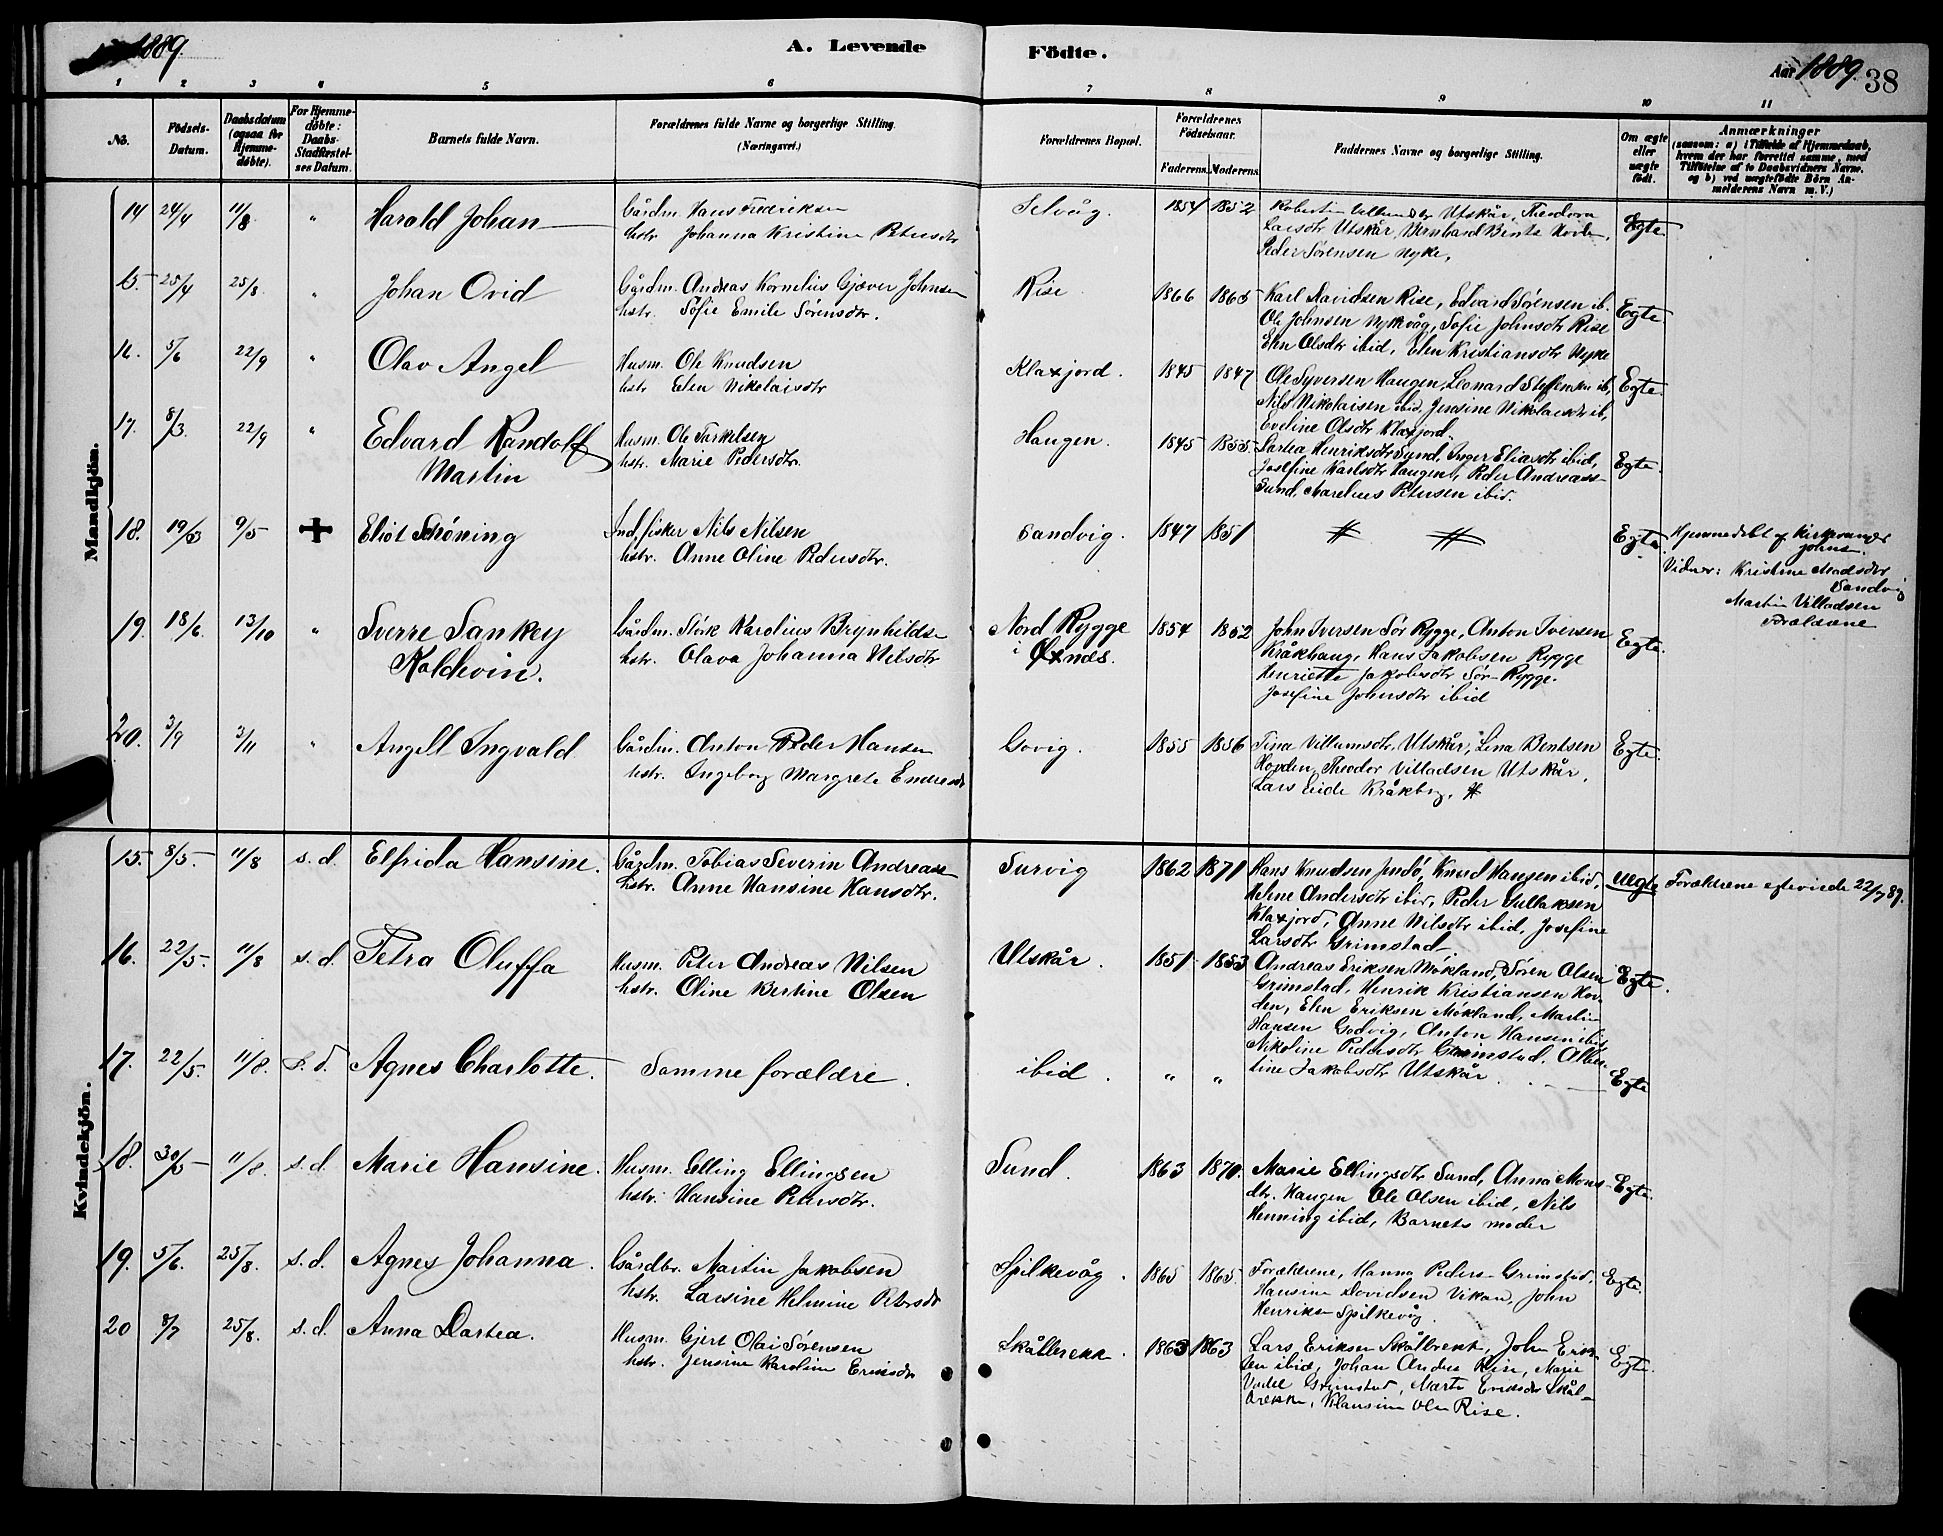 1889.
A. Levende Födte.
Aar 1889. 38
1 2 3 4 5 6 7 8 9 10 11
No.
Födsels-Datum.
Daabsdatum (ogsaa for Hjemme-døbte).
For Hjemme-døbte: Daabs-Stadfæstel-ses Datum.
Barnets fulde Navn.
Forældrenes fulde Navne og borgerlige Stilling. (Næringsvei.)
Forældrenes Bopæl.
Forældrenes Födselsaar.
Faderens. Moderens.
Faddernes Navne og borgerlige Stilling.
Om ægte eller uægte født.
Anmærkninger
(saasom: a) i Tilfælde af Hjemmedaab, hvem der har forrettet samme, med Tilføielse af to Daabsvidners Navne. og b) ved uægtefødte Børn An-melderens Navn m. V.)
Mandkjön.
14 24/4 11/8 " Harold Johan
Gårdm. Hans Fredriksen
hstr. Johanna Kristine Petersdtr
Selvåg. 1854 1852
Utskår, Theodora
Larsdtr Utskår, Bernhard Bents Hovden,
Peder Sørensen Nyke.
Egte.
15. 25/4 25/8 " Johan Ovid
Gårdm. Andreas Kornelius Gjæver Johnsen
hstr. Sofie Emilie Sørensdtr.
Rise 1866 1865
Karl Davidsen Rise, Edvard Sørensen ib.
Ole Johnsen Nykvåg, Sofie Johnsdtr Rise
Elen Olsdtr ibid, Elen Kristiansdtr Nyke
Egte.
16. 5/6 22/9 " Olav Angel
Husm. Ole Knudsen
hstr. Elen Nikolaisdtr
Klaxjord. 1845 1847
Ole Syversen Haugen, Leonard Steffensen ib,
Nils Nikolaisen ibid, Jensine Nikolaisdtr ib,
Eveline Olsdtr Klaxjord.
Egte.
17. 8/3. 22/9 " Edvard Randolf Martin
Husm. Ole Torkelsen
hstr. Marie Pedersdtr.
Haugen. 1845 1855
Lartea Henriksdtr Sund, Inger Eliasdtr ibid,
Josefine Karlsdtr Haugen, Peder Andreass-
Sund, Marelius Petersen ibid.
Egte.
18. 19/3 9/5 ✝ Eliot Schöning
Ind. fisker Nils Nilsen
hstr. Anne Oline Pedersdtr.
Sandvig. 1847 1851 # #
Egte
Hjemmedøbt af Kirkesanger
Johns.
Vidner: Kristine Madsdtr
Sandvig
Martin Villadsen
19. 18/6. 13/10 " Sverre Sankey Kaldevin.
Gårdm. Størk Karolius Brynhildsen
hstr. Olava Johanna Nilsdtr
Nord Rygge
i Øxnes. 1854 1852
John Iversen Sør Rygge, Anton Iversen
Kråkhaug, Hans Jakobsen Rygge
Henriette Jakobsdtr Sør-Rygge.
Josefine Johnsdtr ibid
Egte.
20. 3/9 3/11 " Angell Ingvald
Gårdm. Anton Peder Hansen
hstr. Ingeborg Margrete Endresdtr
Govig. 1855 1856
Tina Villumsdtr. Utskår, Lina Bentsen
Hovden, Theodor Villadsen Utskår,
Lars Eide Kråkberg. #
Egte.
Kvindekjön.
15. 8/5. 11/8 s.d. Elfrida Hansine.
Gårdm. Tobias Severin Andreass
hstr. Anne Hansine Hansdtr.
Survig 1862 1871
Hans Knudsen Jendø, Knud Hansen ibid,
Helene Andersdtr ibid, Peder Sullaksen
Klaxjord, Anne Nilsdtr ibid, Josefine
Larsdtr Grimstad
Uegte
Forældrene efterviede 22/7 89.
16. 22/5. 11/8 s.d. Petra Oluffa
Husm. Peter Andreas Nilsen
hstr. Oline Bertine Olsen
Utskår. 1851 1853
Andreas Eriksen Møkland, Søren Olsen
Grimstad, Henrik Kristiansen Hov-
den, Elen Eriksen Møkland, Martin
Hansen Godvig, Anton Hansen ibid
Nikoline Pedersdtr Grimstad. Alber-
tine Jakobsdtr Utskår
Egte.
17. 22/5. 11/8. s.d. Agnes Charlotte.
Samme forældre.
ibid. " " Egte
18. 30/5 11/8. s.d. Marie Hansine.
Husm. Elling Ellingsen
hstr. Hansine Petersdtr.
Sund. 1863 1870.
Marie Ellingsdtr Sund, Anna Mons-
dtr. Haugen, Ole Olsen ibid, Nils
Henning ibid, Barnets moder
Egte.
19. 5/6. 25/8. s.d. Agnes Johanna.
Gårdbr. Martin Jakobsen
hstr. Larsine Helmine Petersdtr
Spilkevåg. 1865 1865.
Forældrene, Hanna Peders- Grimstad,
Hansine Davidsen Vikan, John
Henriksen Spilkevåg.
Egte.
20 8/7 25/8. s.d. Anna Dartea.
Husm. Gjert Olai Sørensen
hstr. Jensine Karoline Eriksdtr
Skålbrekk. 1863 1863
Lars Eriksen Skålbrekk, John Erik-
sen ibid, Johan Andrea Rise, Marie
Vadel Grimstad, Marte Eriksdtr Skål-
brekke, Klausine Olsen Rise.
Egte.